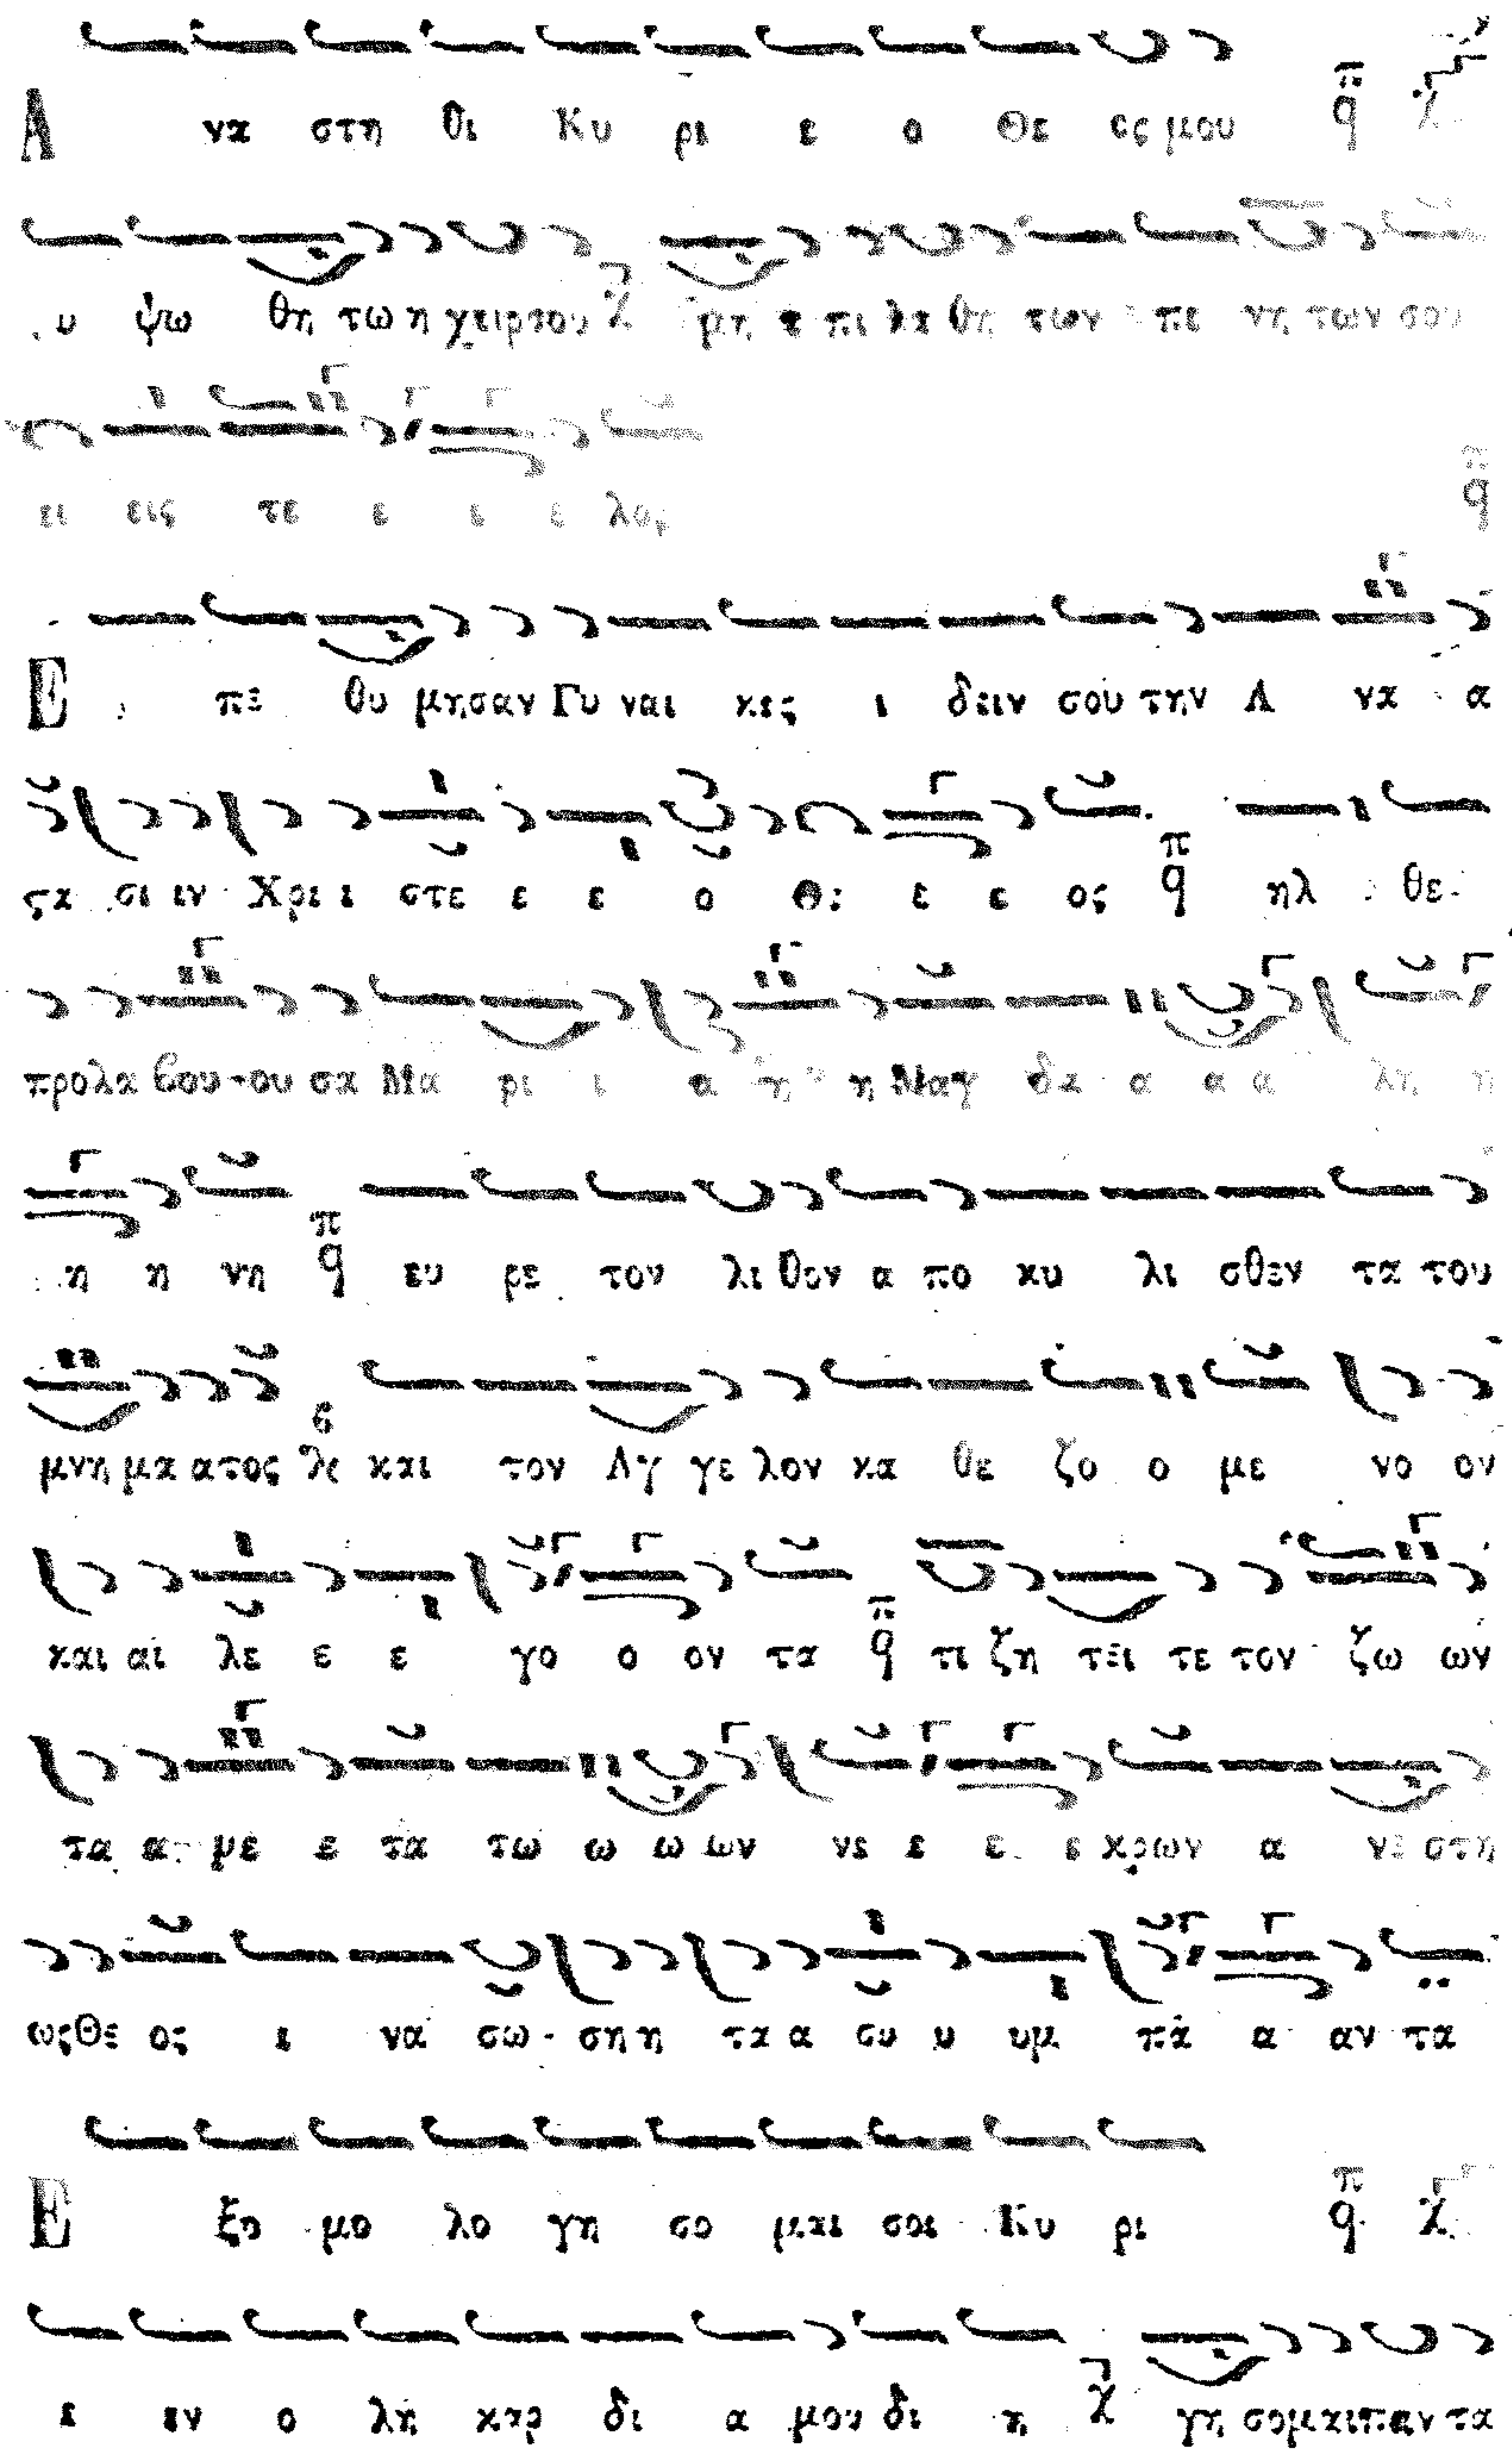 Α να στη θι Κυ ρι ε ο Θε ος μου
υ ψω θη τω η χειρ σου μη ε πι λα θη των πε νη των σου
ει εις τε ε ε ε λος
Ε πε θυ μησαν Γυ ναι κες ι δειν σου την Α να α
ϛα σι ιν Χρι ι στε ε ε ο Θε ε ε ος ηλ θε
προλα βου ου σα Μα ρι ι α η η Μαγ δα α α α λη η
η η νη ευ ρε τον λι θον α πο κυ λι σθεν τα του
μνη μα ατος και τον Αγ γε λον κα θε ζο ο με νο ον
και αι λε ε ε γο ο ον τα τι ζη τει τε τον ζω ων
τα α με ε τα τω ω ω ων νε ε ε ε κρων α νε στη
ως Θε ος ι να σω ση η τα α συ υ υμ πα α αν τα
Ε ξο μο λο γη σο μαι σοι Κυ ρι
ε εν ο λη καρ δι α μου δι η γη σομαι παν τα